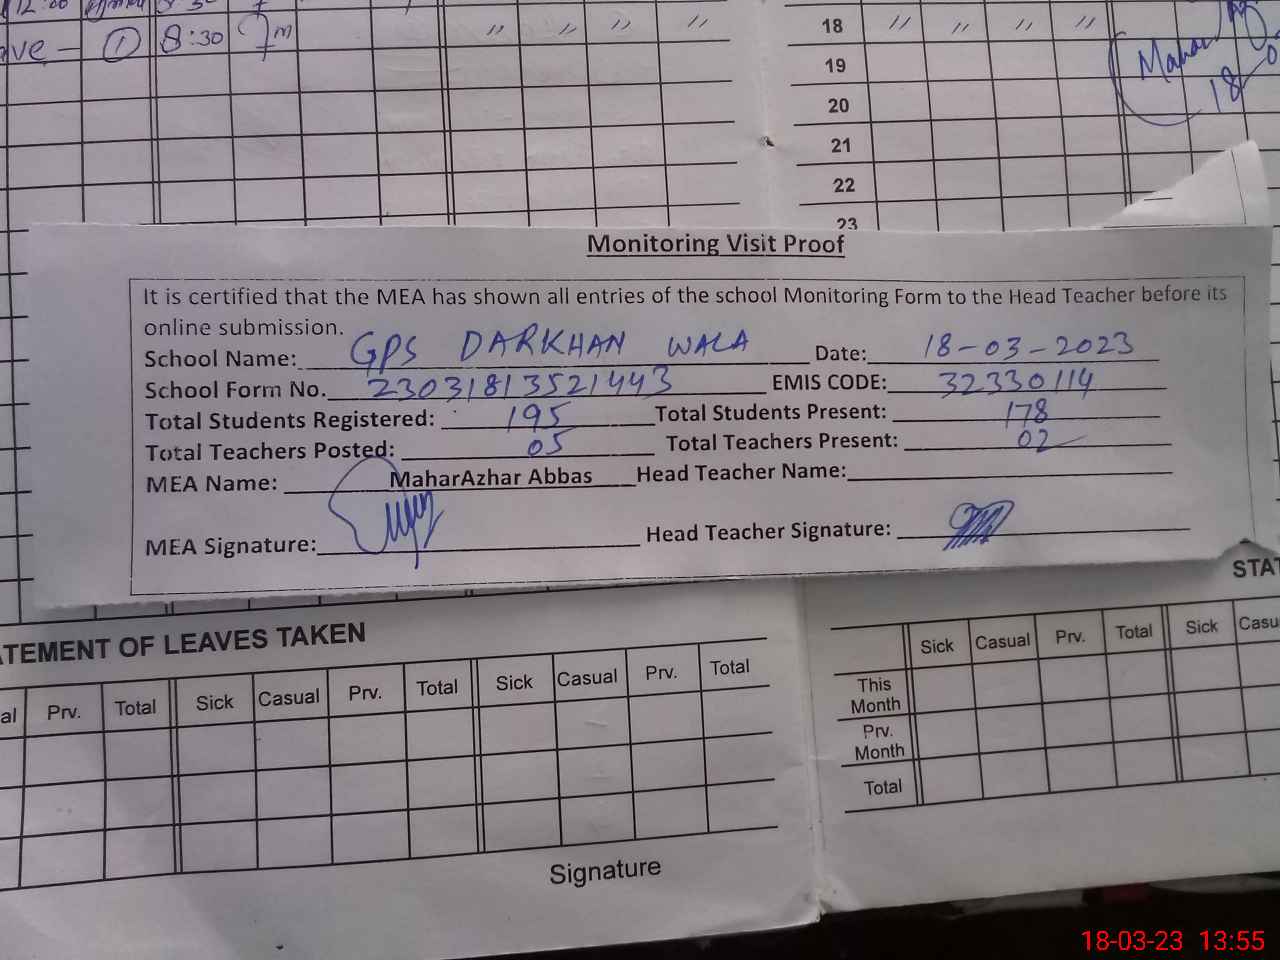 12:00
ve - 1 8:30
" " " " 18 " " " "
19
20
21
22
23
Mahar
18
Monitoring Visit Proof
It is certified that the MEA has shown all entries of the school Monitoring Form to the Head Teacher before its
online submission.
School Name: GPS DARKHAN WALA Date: 18-03-2023
School Form No. 23031813521443 EMIS CODE: 32330114
Total Students Registered: 195 Total Students Present: 178
Total Teachers Posted: 05 Total Teachers Present: 02
MEA Name: MaharAzhar Abbas Head Teacher Name:
MEA Signature: Head Teacher Signature:
ATEMENT OF LEAVES TAKEN
STAT
al Prv. Total Sick Casual Prv. Total Sick Casual Prv. Total
Sick Casual Prv. Total Sick Casu
This
Month
Prv.
Month
Total
Signature
18-03-23 13:55